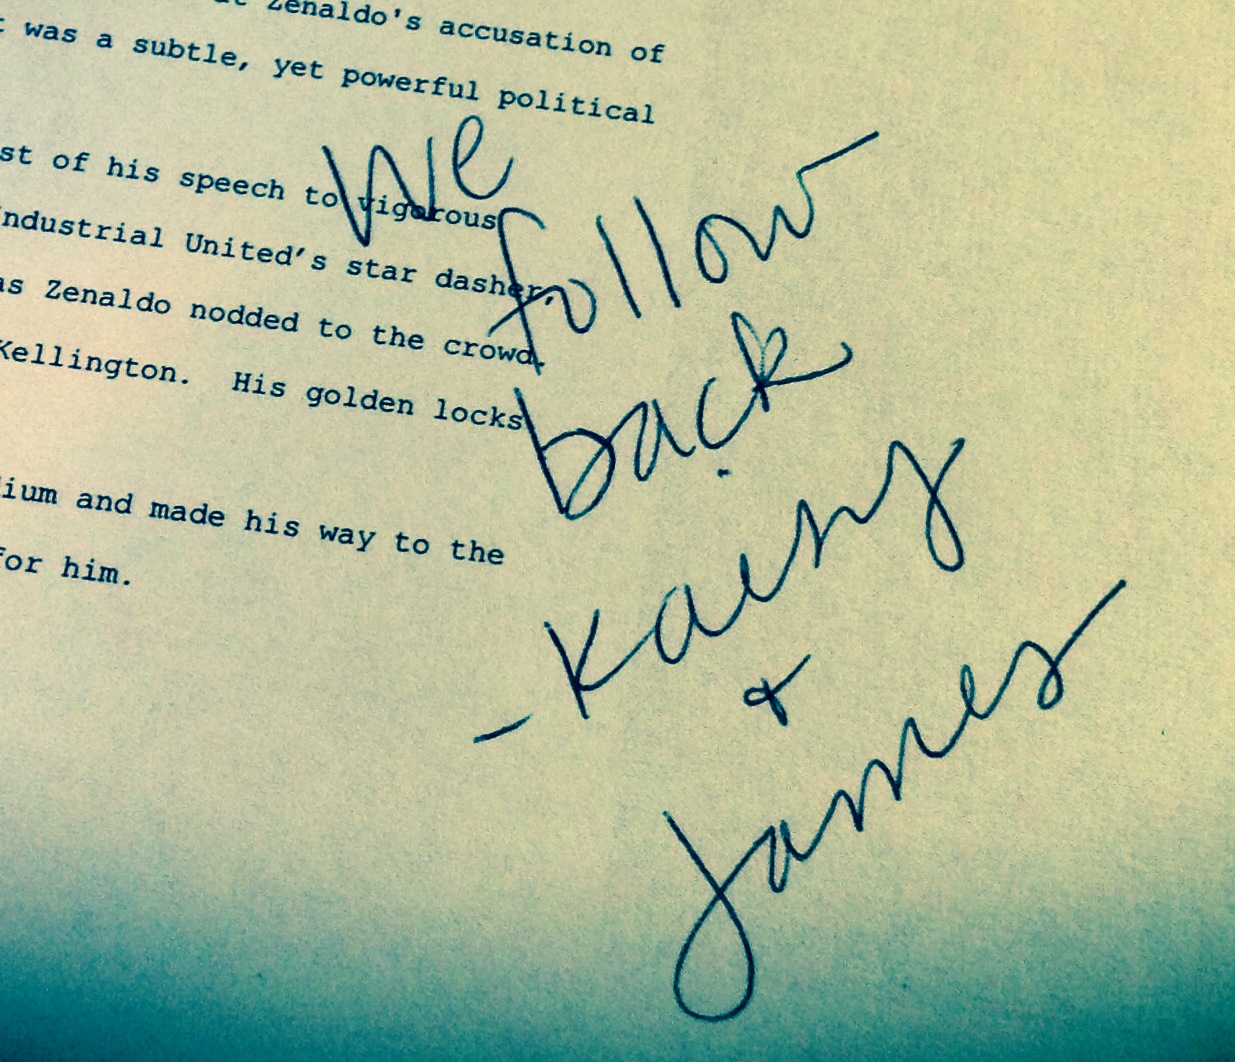 Zenaldo's accusation of
was a subtle, yet powerful political
st of his speech to vigorous
ndustrial United's star dasher,
as Zenaldo nodded to the crowd.
Kellington. His golden locks
ium and made his way to the
for him.
We
follow
back
- Kaeny
&
James